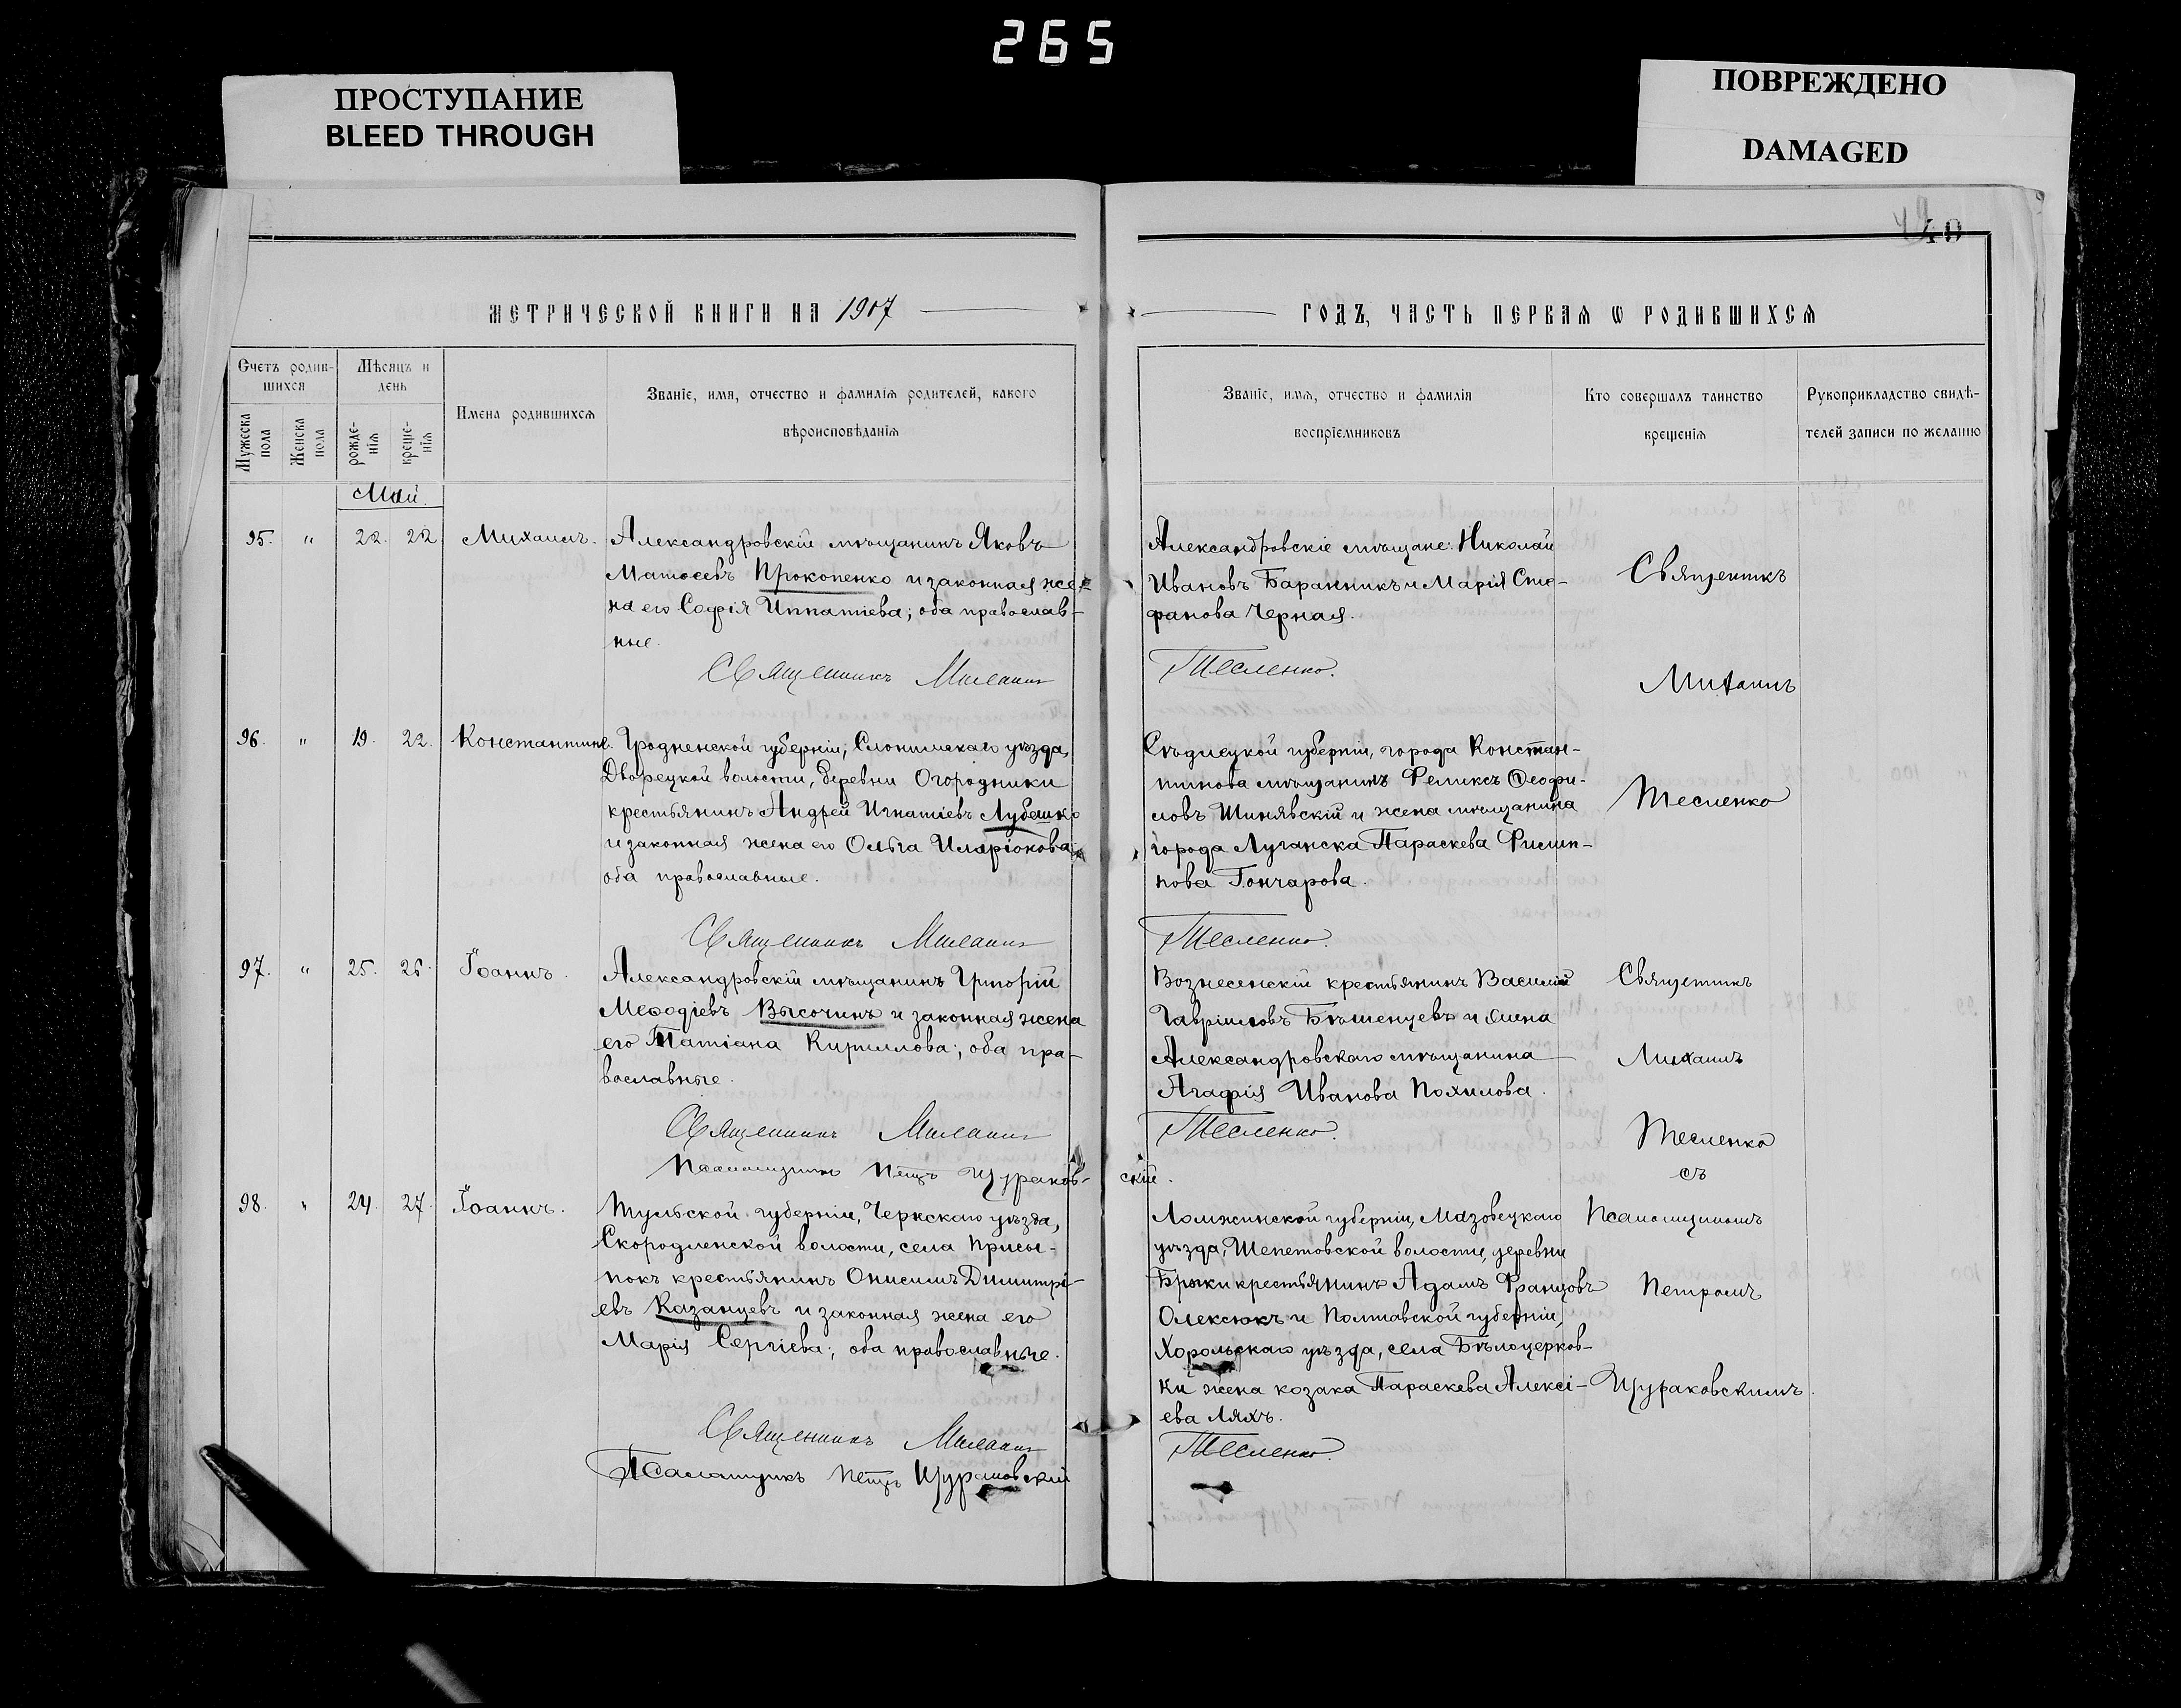 265
ПРОСТУПАНИЕ
BLEED THROUGH
ПОВРЕЖДЕНО
DAMAGED
МЕТРИЧЕСКОЙ КНИГИ НА 1907
Счетъ родив-
шихся
Мѣсяцъ и
день
Мужеска
пола
Женска
пола
рожде-
нія
креще-
нія
Имена родившихся
Званіе, имя, отчество и фамилія родителей, какого
вѣроисповѣданія
Май.
95. " 22. 22 Михаилъ.
Александровскій мѣщанинъ Яковъ
Матѳеевъ Прокопенко и законная же-
на его Софія Игнатіева; оба православ-
ные.
Священникъ Михаилъ
96. " 19. 22. Константинъ.
Гродненской губерніи, Слонимскаго уѣзда,
Дворецкой волости, деревни Огородники
крестьянинъ Андрей Игнатіевъ Лубешко
и законная жена его Ольга Иларіонова;
оба православные.
Священникъ Михаилъ
97. " 25. 26. Іоаннъ.
Александровскій мѣщанинъ Григорій
Меѳодіевъ Высочинъ и законная жена
его Татіана Кириллова; оба пра-
вославные.
Священникъ Михаилъ
Псаломщикъ Петръ Щураков-
98. " 24. 27. Іоаннъ.
Тульской губерніи, Чернскаго уѣзда,
Скородненской волости, села Присы-
покъ крестьянинъ Онисимъ Димитрі-
евъ Казанцевъ и законная жена его
Марія Сергіева; оба православные.
Священникъ Михаилъ
Псаломщикъ Петръ Щураковскій
40
ГОДЪ, ЧАСТЬ ПЕРВАЯ Ѡ РОДИВШИХСЯ
Званіе, имя, отчество и фамилія
воспріемниковъ
Кто совершалъ таинство
крещенія
Рукоприкладство свидѣ-
телей записи по желанію
Александровскіе мѣщане: Николай
Ивановъ Баранникъ и Марія Сте-
фанова Черная.
Тесленко.
Священникъ
Михаилъ
Сѣдлецкой губерніи, города Констан-
тинова мѣщанинъ Феликсъ Ѳеофи-
ловъ Шинявскій и жена мѣщанина
города Луганска Параскева Филип-
пова Гончарова.
Тесленко.
Тесленко
Вознесенскій крестьянинъ Василій
Гавріиловъ Бѣшенцевъ и жена
Александровскаго мѣщанина
Агафія Иванова Похилова.
Тесленко.
скій.
Священникъ
Михаилъ
Тесленко
съ
Ломжинской губерніи, Мазовецкаго
уѣзда, Шепетовской волости, деревни
Брыки крестьянинъ Адамъ Францовъ
Олексюкъ и Полтавской губерніи,
Хорольскаго уѣзда, села Бѣлоцерков-
ки жена козака Параскева Алексі-
ева Ляхъ.
Тесленко.
Псаломщикомъ
Петромъ
Щураковскимъ.